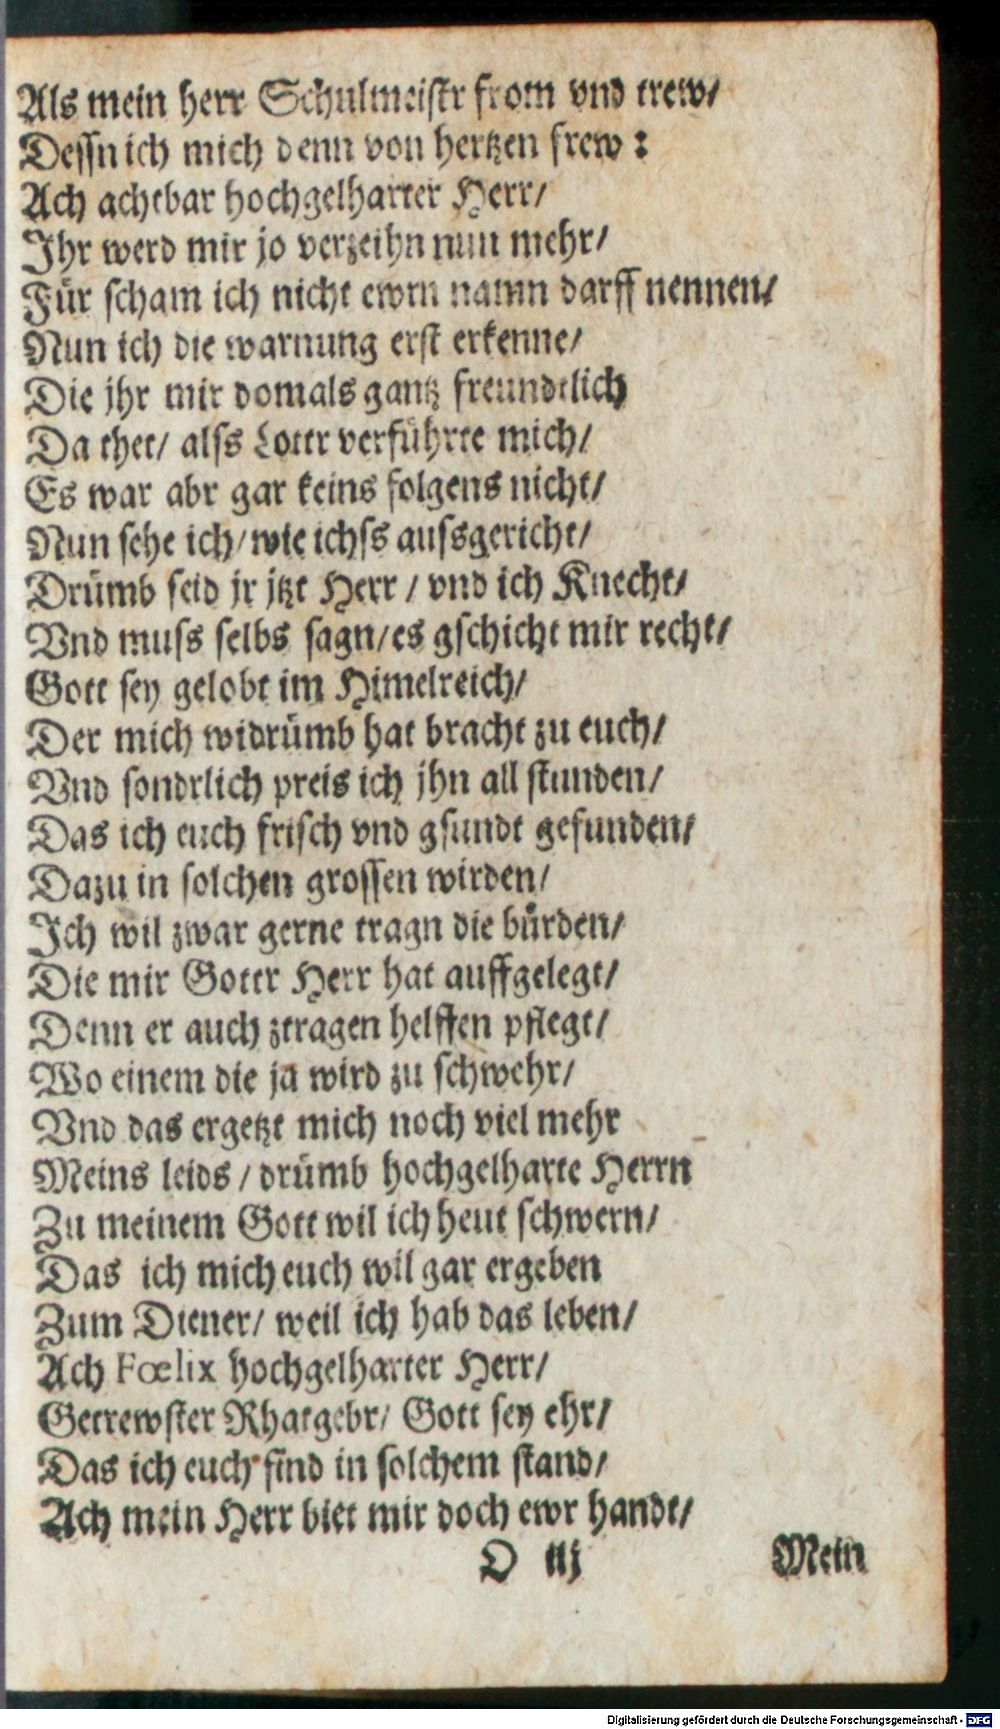 Als mein herr Schulmeistr from vnd trew/
Dessn ich mich denn von hertzen frew:
Ach achtbar hochgelharter Herr/
Ihr werd mir jo verzeihn nun mehr/
Für scham ich nicht ewrn namn darff nennen/
Nun ich die warnung erst erkenne/
Die jhr mir domals gantz freundtlich
Da thet/ alss Lottr verführte mich/
Es war abr gar keins folgens nicht/
Nun sehe ich/ wie ichss aussgericht/
Drümb seid jr jtzt Herr / vnd ich Knecht/
Vnd muss selbs sagn/ es gschicht mir recht/
Gott sey gelobt im Himelreich/
Der mich widrümb hat bracht zu euch/
Vnd sondrlich preis ich jhn all stunden/
Das ich euch frisch vnd gsundt gefunden/
Dazu in solchen grossen wirden/
Ich wil zwar gerne tragn die bürden/
Die mir Gotter Herr hat auffgelegt/
Denn er auch ztragen helffen pflegt/
Wo einem die ja wird zu schwehr/
Vnd das ergetzt mich noch viel mehr
Meins leids / drümb hochgelharte Herrn
Zu meinem Gott wil ich heut schwern/
Das ich mich euch wil gar ergeben
Zum Diener/ weil ich hab das leben/
Ach Fœlix hochgelharter Herr/
Getrewster Rhatgebr/ Gott sey ehr/
Das ich euch find in solchem stand/
Ach mein Herr biet mir doch ewr handt/
D iij Mein
Digitalisierung gefördert durch die Deutsche Forschungsgemeinschaft - DFG